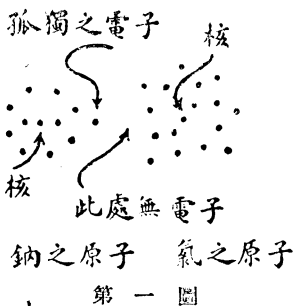 孤獨之電子
核
核
此處無電子
鈉之原子 氯之原子
第一圖